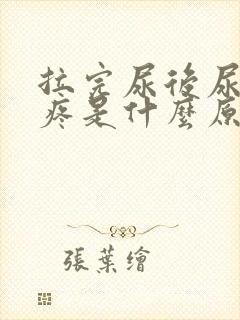 拉完尿後尿
疼是什麼原
張葉繪